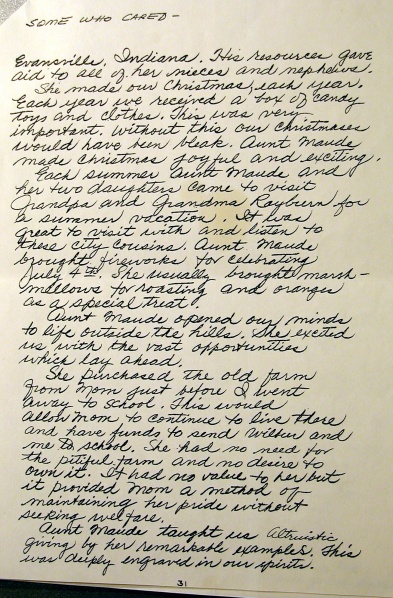 SOME WHO CARED -
Evansville, Indiana. His resources gave
aid to all of her nieces and nephews.
She made our Christmas, each year.
Each year we received a box of candy
toys and clothes. This was very
important. Without this our Christmases
would have been bleak. Aunt Maude
made Christmas joyful and exciting.
Each summer Aunt Maude and
her two daughters came to visit
Grandpa and Grandma Rayburn for
a summer vacation. It was
great to visit with and listen to
these city cousins. Aunt Maude
brought fireworks for celebrating
July 4th. She usually brought marsh-
mellows for roasting and oranges
as a special treat.
Aunt Maude opened our minds
to life outside the hills. She excited
us with the vast opportunities
which lay ahead.
She purchased the old farm
from Mom just before I went
away to school. This would
allow Mom to continue to live there
and have funds to send Wilbur and
me to school. She had no need for
the pitiful farm and no desire to
own it. It had no value to her but
it provided Mom a method of
maintaining her pride without
seeking welfare.
Aunt Maude taught us altruistic
giving by her remarkable examples. This
was deeply engraved in our spirits.
31